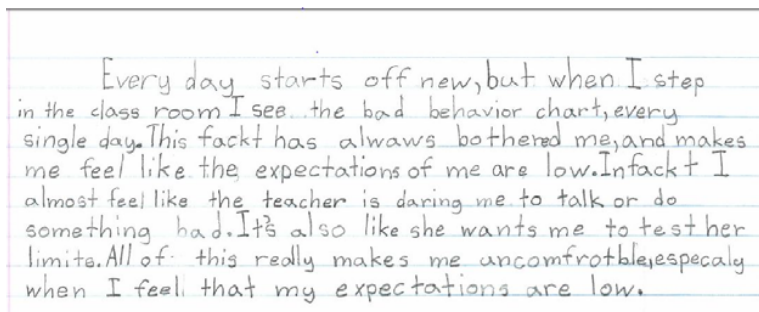 Every day starts off new, but when I step
in the class room I see the bad behavior chart, every
single day. This fackt has alwaws bothered me, and makes
me feel like the expectations of me are low. Infackt I
almost feel like the teacher is daring me to talk or do
something bad. It's also like she wants me to test her
limits. All of this really makes me uncomfrotble, especaly
when I feel that my expectations are low.